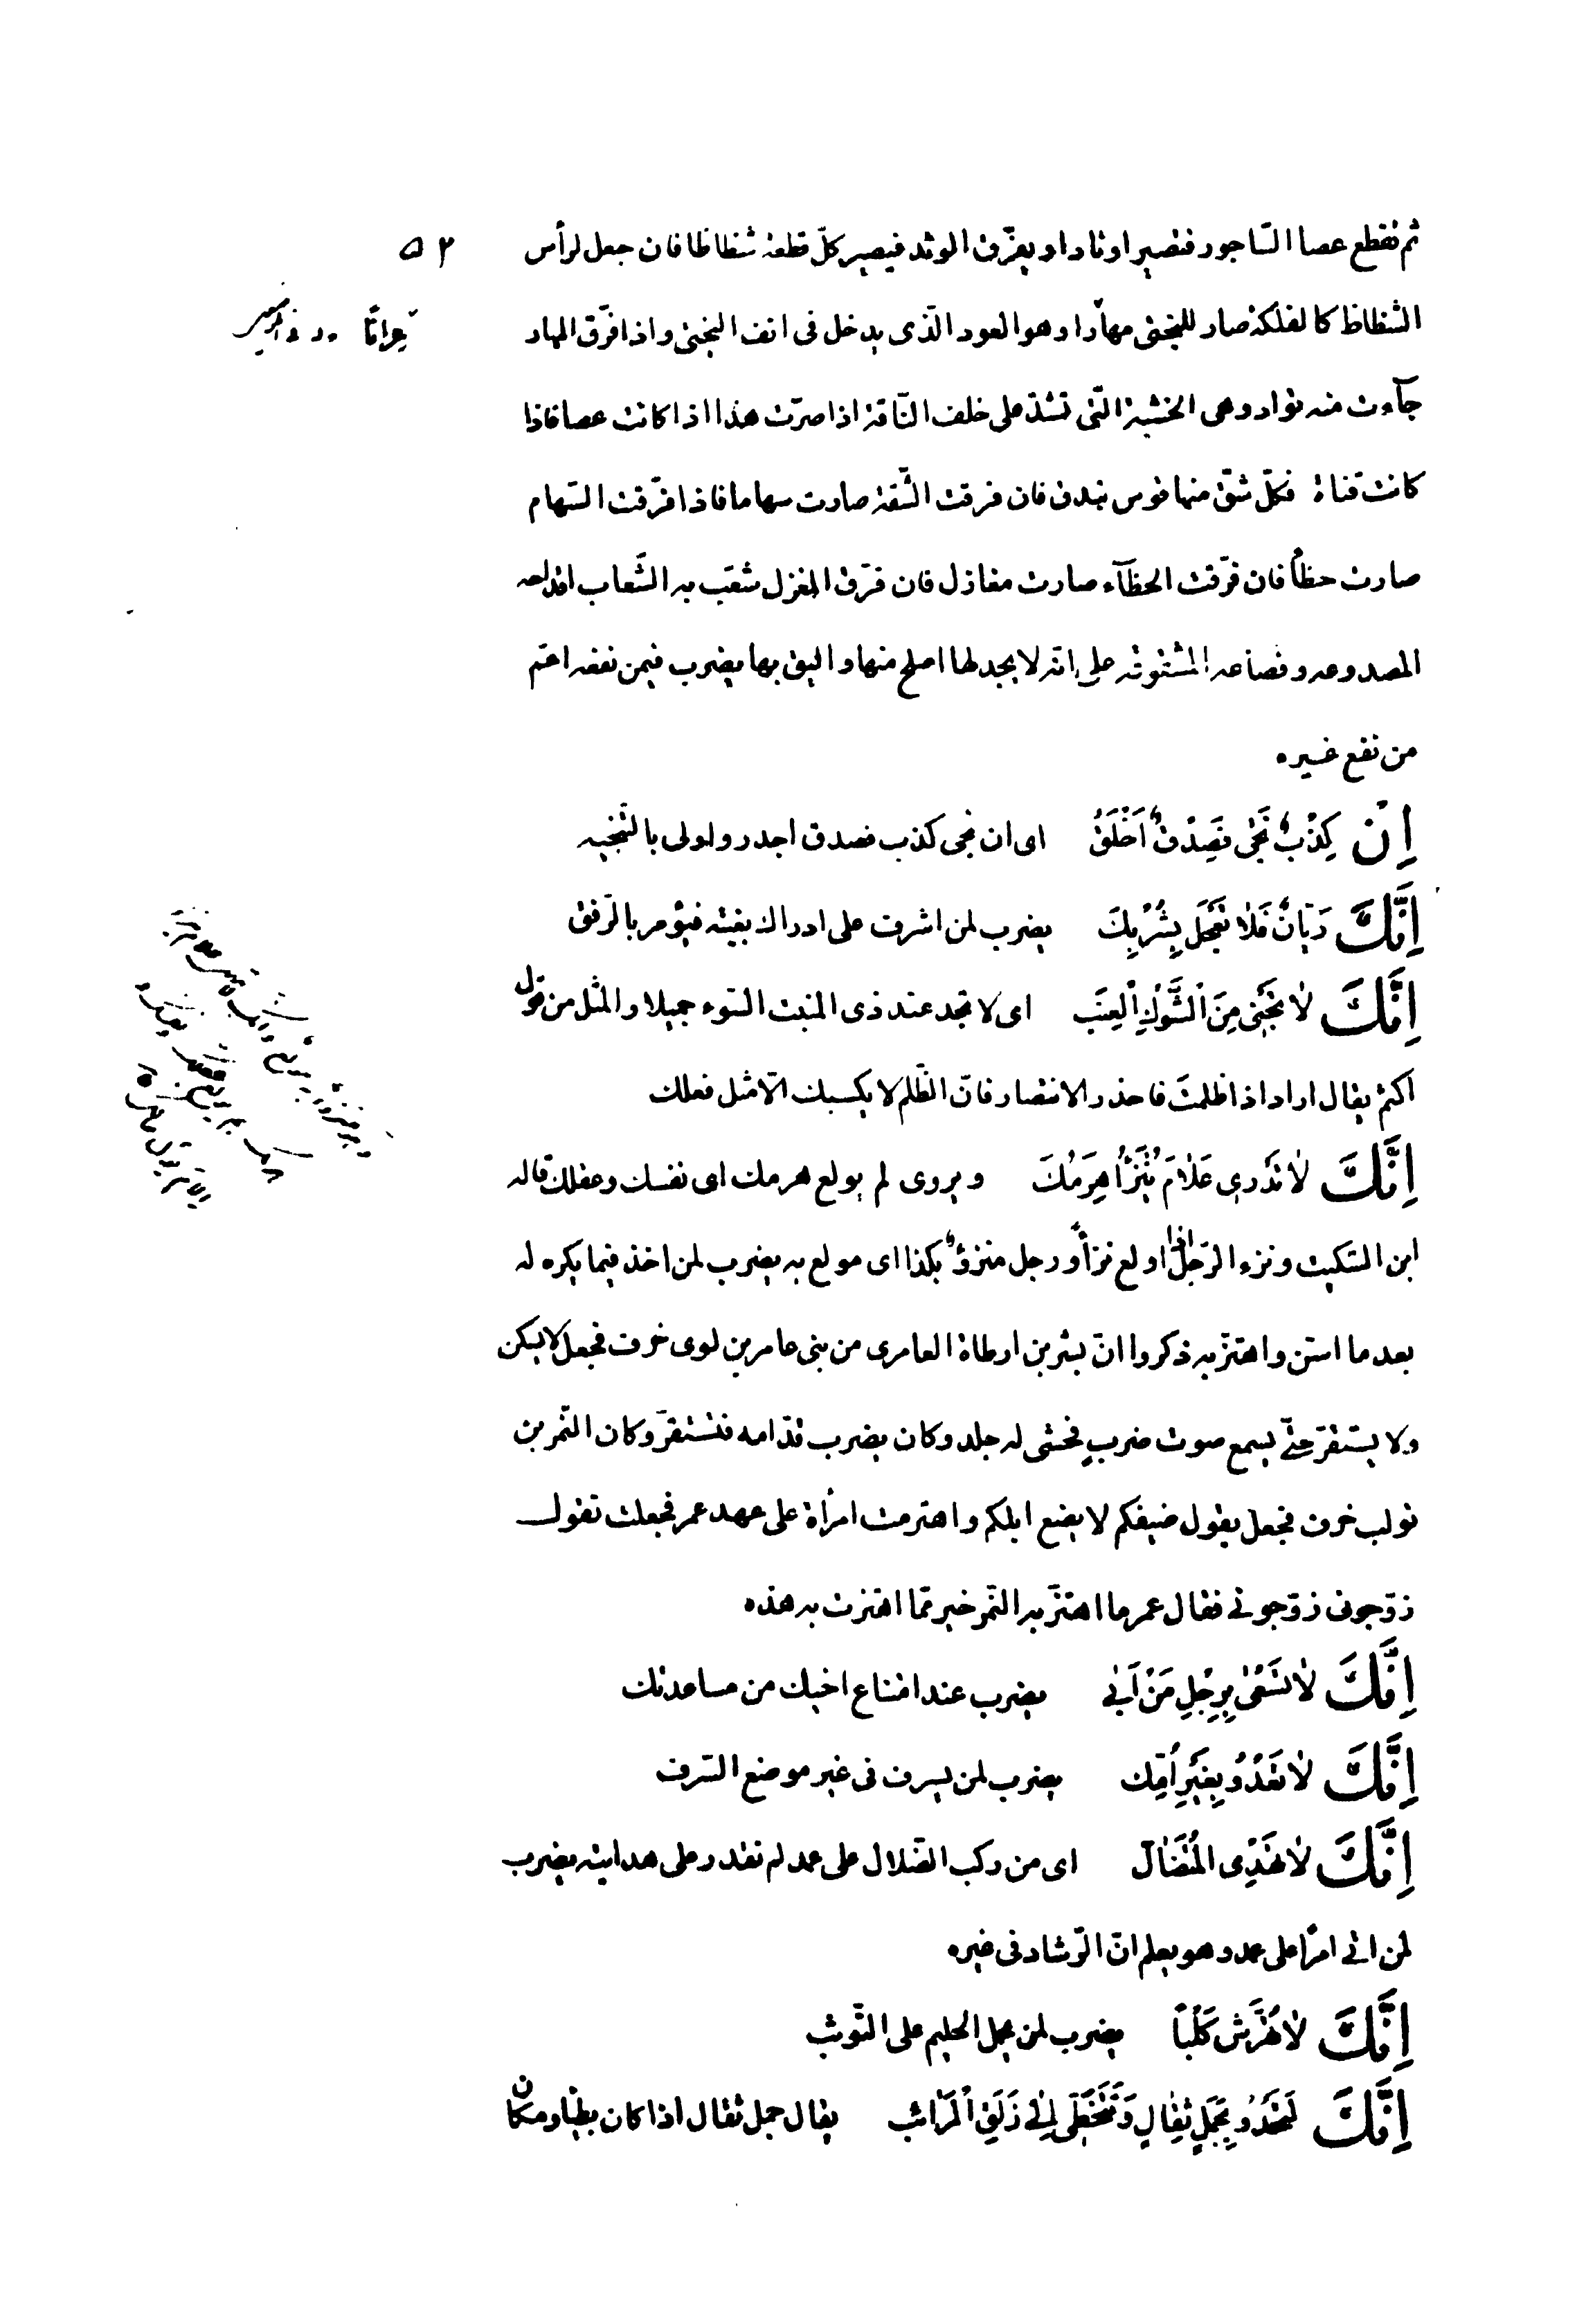 ثم تقطع عصا السّاجور فتصير اوتادا و يفرّق الوتد فيصير كلّ قطعة شظاظا فان جعل لرأس
٥٣
الشظاظ كالفلكة صار للبختى مهارا و هو العود الّذى يدخل فى انف البختى و اذا فرّق المهار
جآءت منه تواد و هى الخشبة الّتى تشدّ على خلف النّاقة اذا صرّت هذا اذا كانت عصا فاذا
كانت قناة فكلّ شقّ منها قوس بندق فان فرقت الشّقة صارت سهاما فاذا فرّقت السّهام
صارت حظأ فان فرّقت الحظآء صارت مغازل فان فرّق المغزل شعّب به الشّعاب اقداحه
المصدوعه و قصاعه المشقوقه على انّه لا يجد لها اصلح منها و اليق بها يضرب فيمن نفعه اعمّ
من نفع غيره
اِنْ كِذْبٌ نَجّى فَصِدْقٌ اَخْلَقُ اى ان نجى كذب فصدق اجدر و اولى بالتّنجيه
اِنَّكَ رَيّانٌ فَلا تَعْجَل بِشُرْبِكَ يضرب لمن اشرف على ادراك بغيته فيؤمر بالرّفق
اِنَّكَ لا تَجْنى مِنَ الشَّوْكِ الْعِنَبَ اى لا تجد عند ذى المنبت السّوء جميلا و المثل من قول
اكثم يقال اراد اذا ظلمتَ فاحذر الانتصار فانّ الظّلم لا يكسبك الّا مثل فعلك
اِنَّكَ لا تَدْرى عَلامَ يُنْزَأُ هَرِمُكَ و يروى لم يولع هرمك اى نفسك و عقلك قاله
ابن السّكيت و نزء الرّجل اذا اولع نزأً و رجل منزوٌ بكذا اى مولع به يضرب لمن اخذ فيما يكره له
بعد ما اسنّ و اهتزّ به ذكروا انّ بشر بن ارطاة العامرى من بنى عامر بن لوى خرف فجعل لا يسكن
و لا يستقرّ حتّى يسمع صوت ضربٍ فحشى له جلد و كان يضرب قدّامه فتستقرّ و كان النّمر بن
تولب خرف فجعل يقول ضيفكم لا يضع ابلكم و اهترمت امرأة على عهد عمر فجعلت تقول
زوّجونى زوّجونى فقال عمر ما اهتزّ به النّمر خير ممّا اهتزت به هذه
اِنَّكَ لا تَسْعى بِرِجْلِ مَنْ اَبى يضرب عند امتناع اخيك من مساعدتك
اِنَّكَ لا تَعْدُو بِغَيْرِ اُمِّك يضرب لمن يسرف فى غير موضع السّرف
اِنَّكَ لا تَهْدِى الْمُتَضالّ اى من ركب الضّلال على عمد لم تقدر على هدايته يضرب
لمن اتى امرًا على عمد و هو يعلم انّ الرّشاد فى غيره
اِنَّكَ لا تُهَرِّش كَلْباً يضرب لمن يحمل الحليم على التّوثّب
اِنَّكَ لَتَحْدُو بِجَمَلٍ ثِقالٍ وَ تَتَخَطّى اِلى زَلَقِ الْمَراتِب يقال جمل ثقال اذا كان بطيئا و مكان